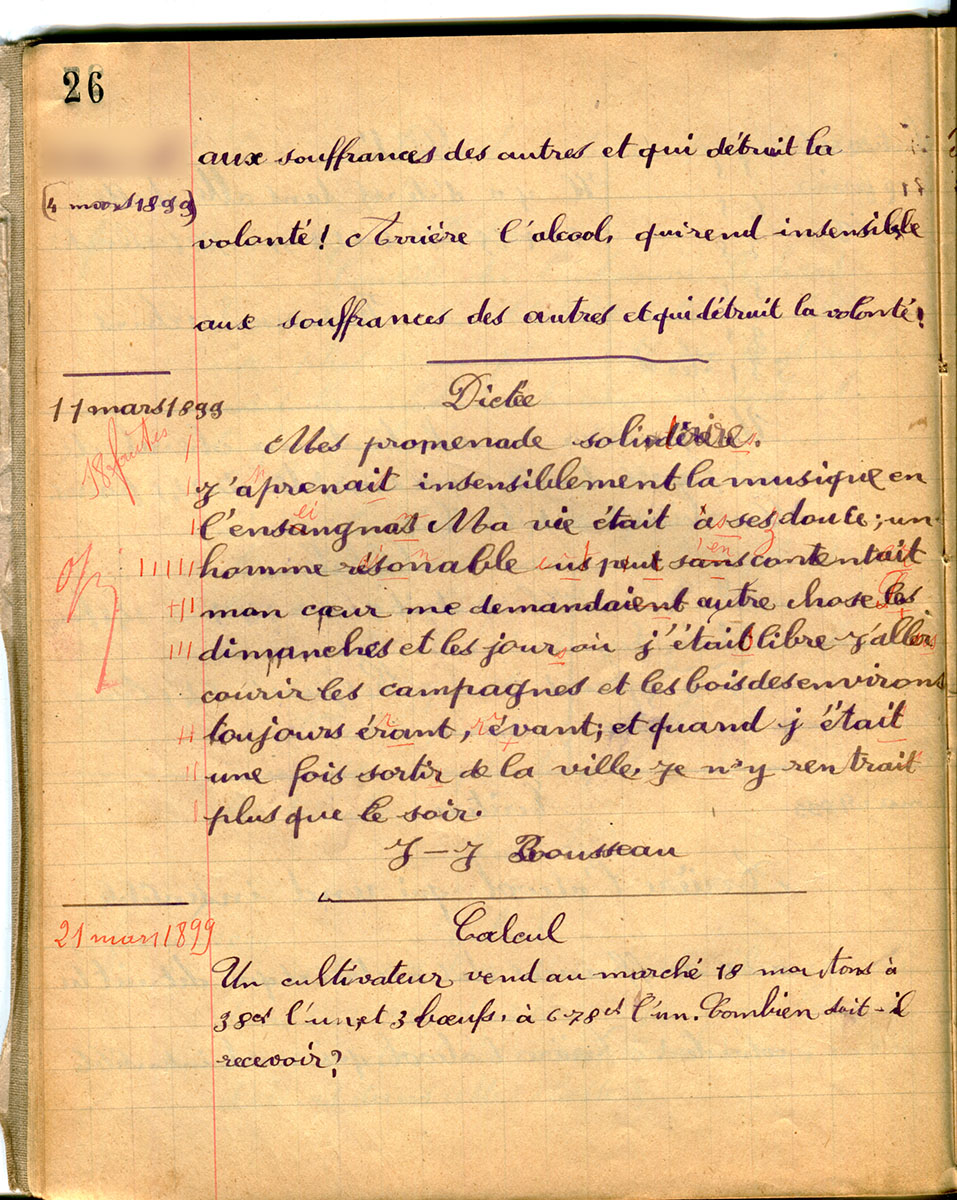 26
aux souffrances des autres et qui détruit la
(4 mars 1899)
volonté! Arrière l'alcool, qui rend insensible
aux souffrances des autres et qui détruit la volonté!
11 mars 1899
Dictée
18 fautes
Mes promenade
j'aprenait insensiblement la musique en
l'ensangnat Ma vie était asses douce; un
homme résonable sans contentait
mon cœur me demandaient autre chose les
dimanches et les jours où j'était libre j'allais
courir les campagnes et les bois des environs
toujours érant, révant; et quand j'était
une fois sortir de la ville, je n'y rentrait
plus que le soir.
J-J Rousseau
21 mars 1899
Calcul
Un cultivateur vend au marché 18 moutons à
38 l'un, et 3 bœufs, à 678 l'un. Combien doit-il
recevoir?